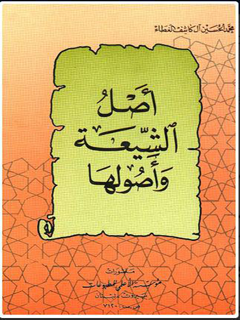 محمد الحسين آل كاشف الغطاء
أصل
الشيعة
وأصولها
منشورات
مؤسسة الأعلمي للمطبوعات
بيروت - لبنان
ص.ب ٧١٢٠